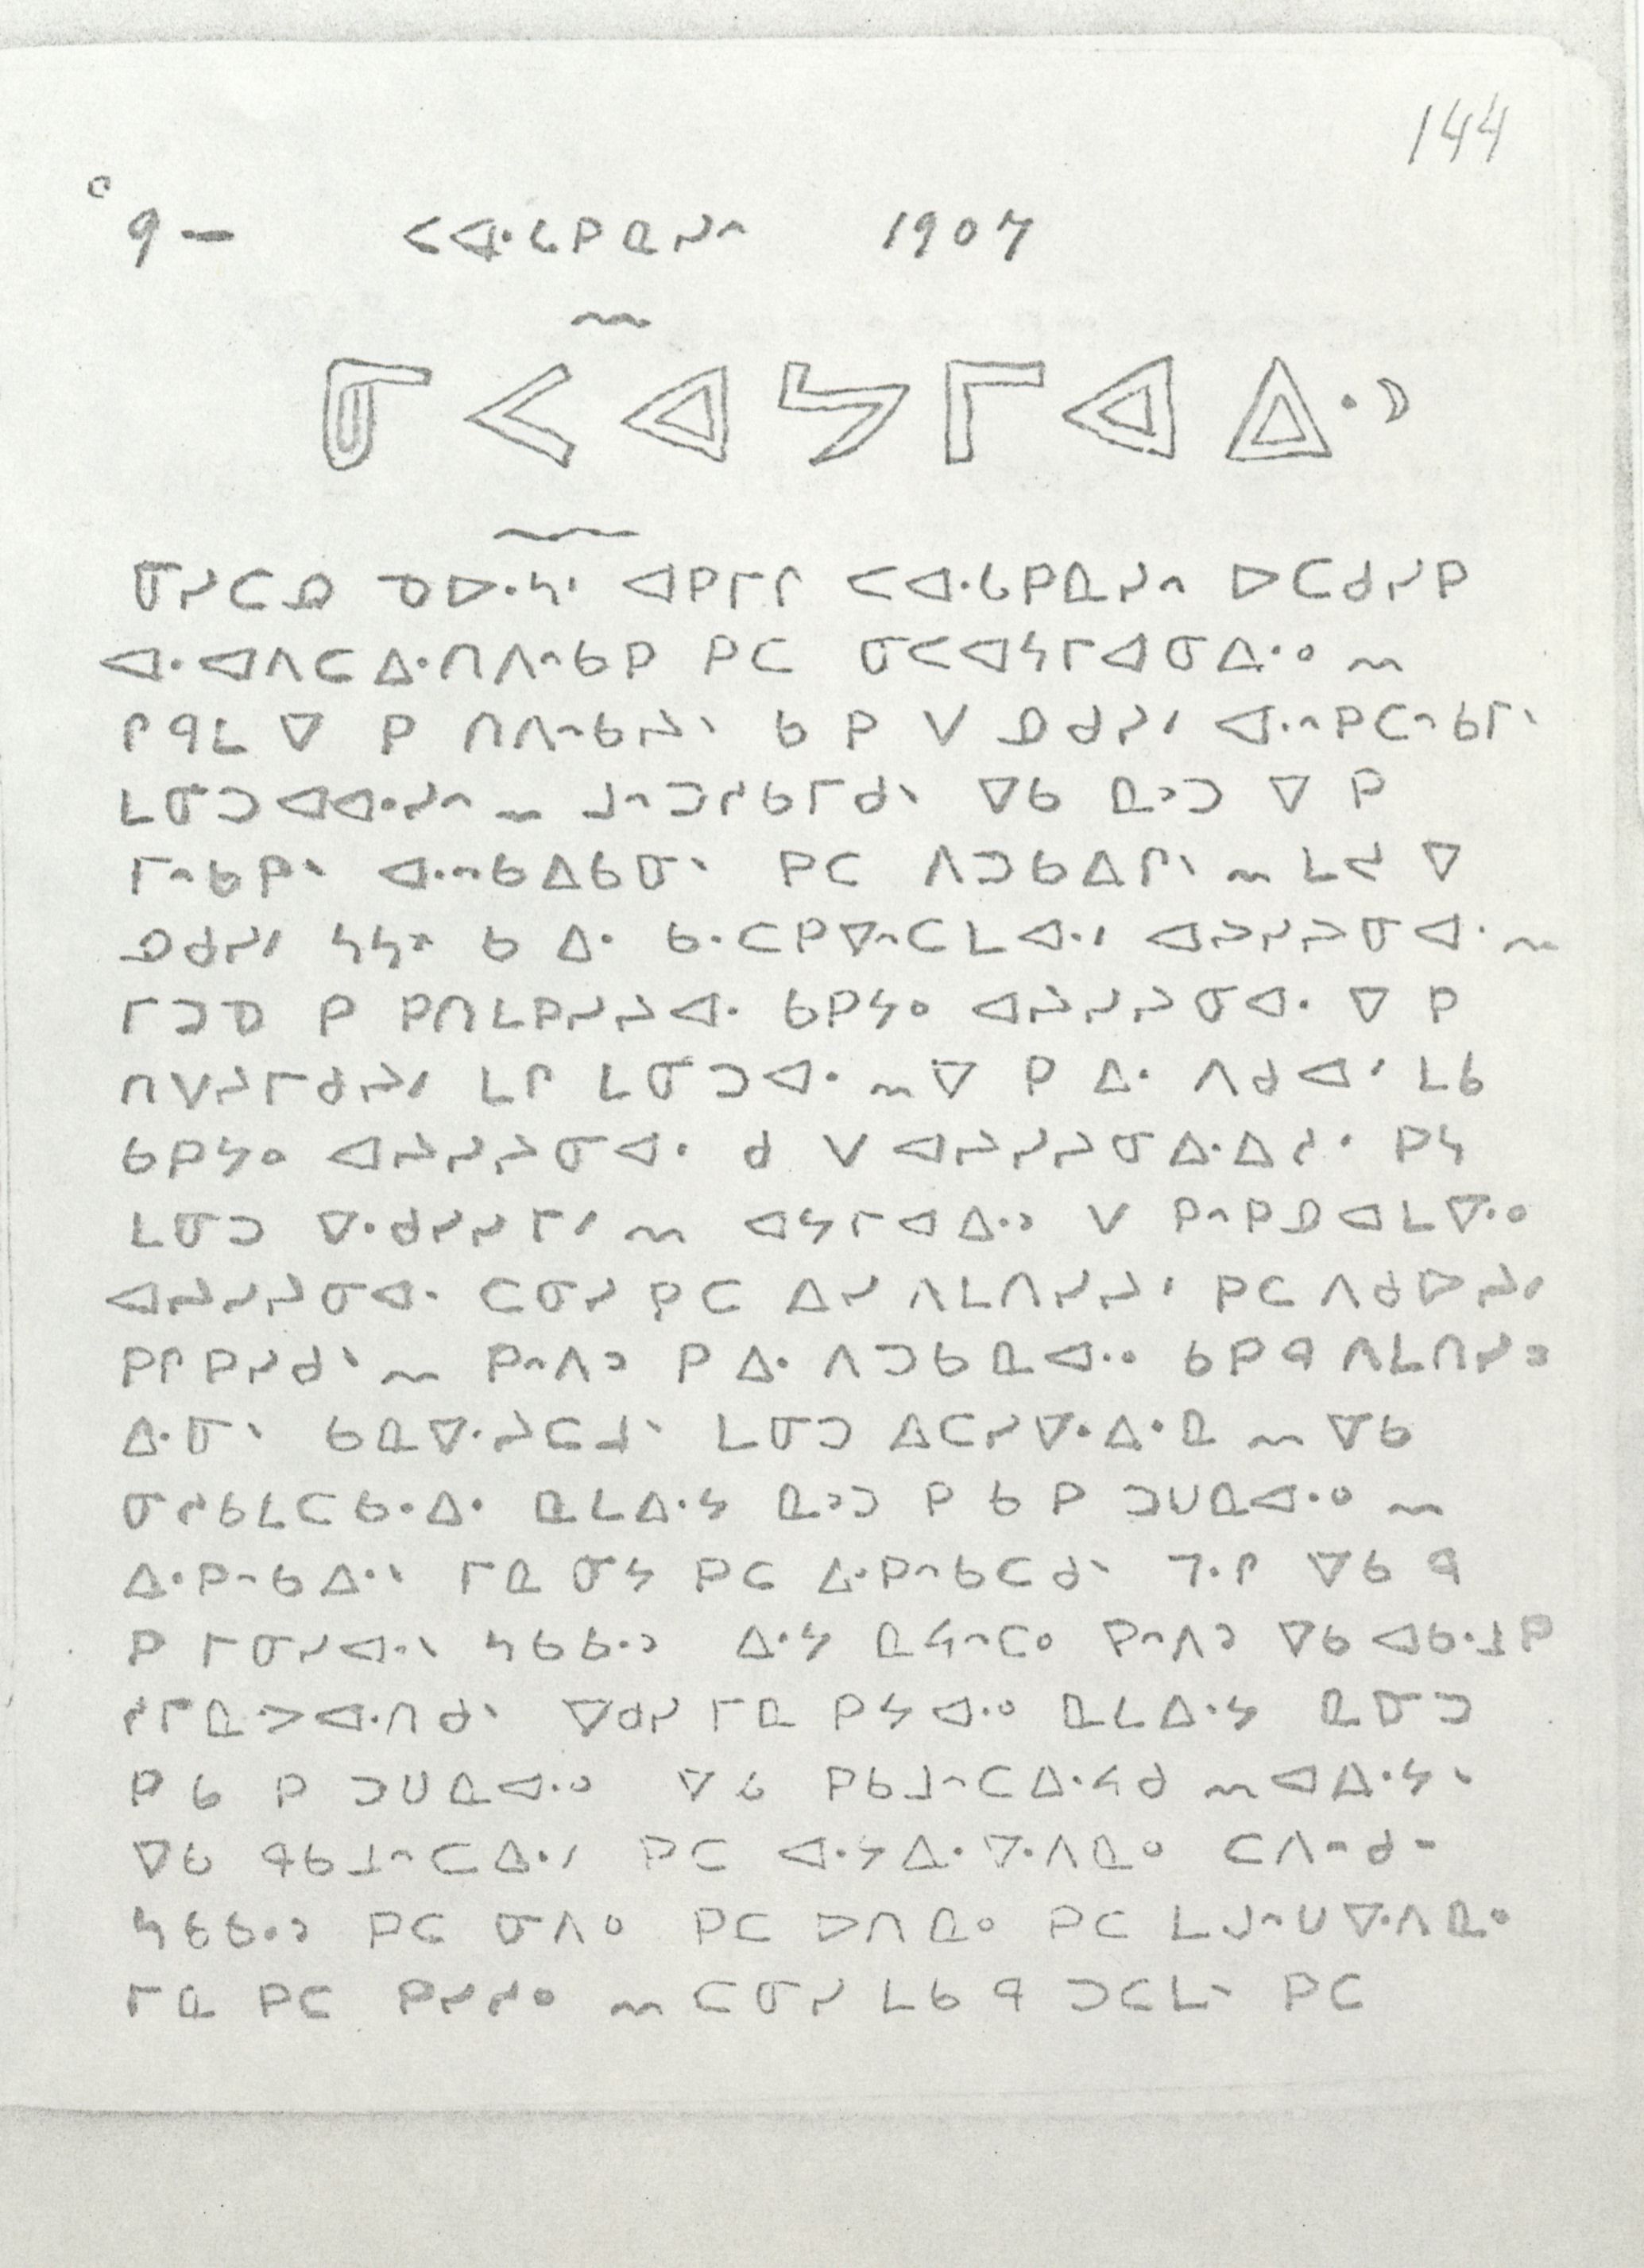 144
9 — ᐸᐗᒐᑭᓇᓯᐢ 1907
ᓂᐸᐊᔭᒥᐊᐃᐧᐣ
ᓂᓯᑕᓄ ᓀᐅᐧᓴᑊ ᐊᑭᒥᒋ ᐸᐊᐧᒐᑭᓇᓯᐢ ᐅᑕᑯᓯᑭ
ᐊᐧᐊᐱᑕᐃᐧᑎᐱᐢᑲᑭ ᑭᑕ ᓂᐸᐊᔭᒥᐊᓂᐃᐧᐤ
ᒋᑫᒪ ᐁ ᑭ ᑎᐱᐢᑲᔨᐠ ᑲ ᑭ ᐯ ᓄᑯᓯᐟ ᐊᐧᐢᑭᑕᐢᑲᒥᐠ
ᒪᓂᑐᐊᐊᐧᓯᐢ ᒧᐢᑐᓱᑲᒥᑯᐠ ᐁᑲ ᓇᐣᑐ ᐁ ᑭ
ᒥᐢᑲᑭᐠ ᐊᐧᐢᑲᐃᑲᓂᐠ ᑭᑕ ᐱᑐᑲᐃᒋᐠ ᒪᔦ ᐁ
ᓄᑯᓯᐟ ᓴᓴᕽ ᑲ ᐃᐧ ᑲᐧᑕᑭᐁᐢᑕᒪᐊᐧᐟ ᐊᔨᓯᔨᓂᐊᐧ
ᒥᑐᓀ ᑭ ᑭᑎᒪᑭᓯᔨᐊᐧ ᑲᑭᔭᐤ ᐊᔨᓯᔨᓂᐊᐧ ᐁ ᑭ
ᑎᐯᔨᒥᑯᓯᔨᐟ ᒪᒋ ᒪᓂᑐᐊᐧ ᐁ ᑭ ᐃᐧ ᐱᑯᐊᐟ ᒪᑲ
ᑲᑭᔭᐤ ᐊᔨᓯᔨᓂᐊᐧ ᑯ ᐯ ᐊᔨᓯᔨᓂᐃᐧᐃᓱᐧ ᑭᓴ
ᒪᓂᑐ ᐁᐧᑯᓯᓯᒥᐟ ᐊᔭᒥᐊᐃᐧᐣ ᐯ ᑭᐢᑭᓄᐊᒪᐁᐧᐤ
ᐊᔨᓯᔨᓂᐊᐧ ᑕᓂᓯ ᑭᑕ ᐃᓯ ᐱᒪᑎᓯᔨᐟ ᑭᑕ ᐱᑯᐅᓯᐟ
ᑭᒋᑭᓯᑯᐠ ᑭᐢᐱᐣ ᑭ ᐃᐧ ᐱᑐᑲᓇᐊᐧᐤ ᑲᑭᑫ ᐱᒪᑎᓯᐣ
ᐃᐧᓂᐠ ᑲᓇᐁᐧᔨᑕᒧᐠ ᒪᓂᑐ ᐃᑕᓯᐁᐧᐃᐧᓇ ᐁᑲ
ᓂᓱᑲᒪᑕᑲᐧᐃᐧ ᓇᒪᐃᐧᔭ ᓇᐣᑐ ᑭ ᑲ ᑭ ᑐᑌᓇᐊᐧᐤ
ᐃᐧᑭᐢᑲᐃᐧᐠ ᒥᓇ ᓂᔭ ᑭᑕ ᐃᐧᑭᐢᑲᑕᑯᐠ ᒣᐧᒋ ᐁᑲ ᑫ
ᑭ ᒥᓂᓯᐊᐧᐠ ᓴᑲᑲᐧᐣ ᐃᐧᔭ ᓇᔕᐢᑕᐤ ᑭᐢᐱᐣ ᐁᑲ ᐊᑲᐧᒧᑭ
ᓱᒥᓇᐳᐊᐧᑎᑯᐠ ᐁᑯᓯ ᒥᓇ ᑭᔭᐊᐧᐤ ᓇᒪᐃᐧᔭ ᓇᓂᑐ
ᑭ ᑲ ᑭ ᑐᑌᓇᐊᐧᐤ ᐁᑲ ᑭᑲᒧᐢᑕᐃᐧᔭᑯ ᐊᐃᐧᔭᐠ
ᐁᑲ ᑫᑲᒧᐢᑕᐃᐧᐟ ᑭᑕ ᐊᐧᔭᐃᐧᐁᐧᐱᓇᐤ ᑕᐱᐢᑯᐨ
ᓴᑲᑲᐧᐣ ᑭᑕ ᓂᐱᐤ ᑭᑕ ᐅᑎᓇᐤ ᑭᑕ ᒪᒍᐢᑌᐁᐧᐱᓇᐤ
ᒥᓇ ᑭᑕ ᑭᓯᓱᐤ ᑕᓂᓯ ᒪᑲ ᑫ ᑐᑕᒪᐠ ᑭᑕ